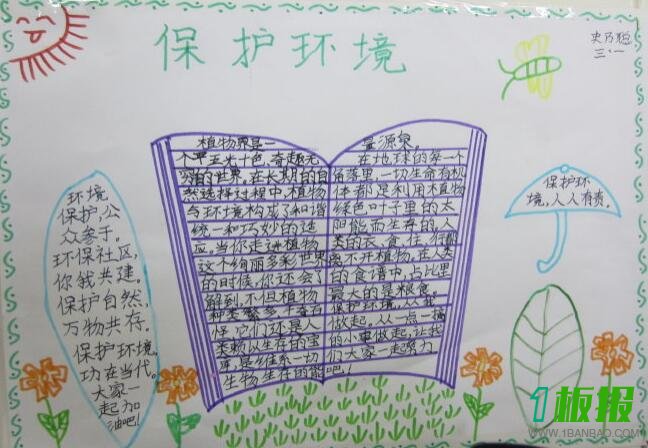 保护环境
史乃聪
三·一
环境
保护,公
众参于。
环保社区,
你我共建。
保护自然,
万物共存。
保护环境。
功在当代。
大家一
起加
油吧!
植物界是一
个五光十色、奇趣无
穷的世界。在长期的自
然选择过程中,植物
与环境构成了和谐
统一和巧妙的适
应。当你走进植物
这个绚丽多彩世界
的时候,你还会了
解到,不但植物
种类繁多,千奇百
怪,它们还是人
类赖以生存的宝
库,是维系一切
生物生存的能
量源泉。
在地球的每一个
角落里,一切生命有机
体都是利用植物
绿色叶子里的太
阳能而生存的。人
类的衣、食、住、行都
离不开植物,在人类
的食谱中,占比里
最大的是粮食。
保护环境,从我
做起。从一点一滴
的小事做起,让我
们大家一起努力
吧!
保护环
境,人人有责。
1板报
WWW.1BANBAO.COM